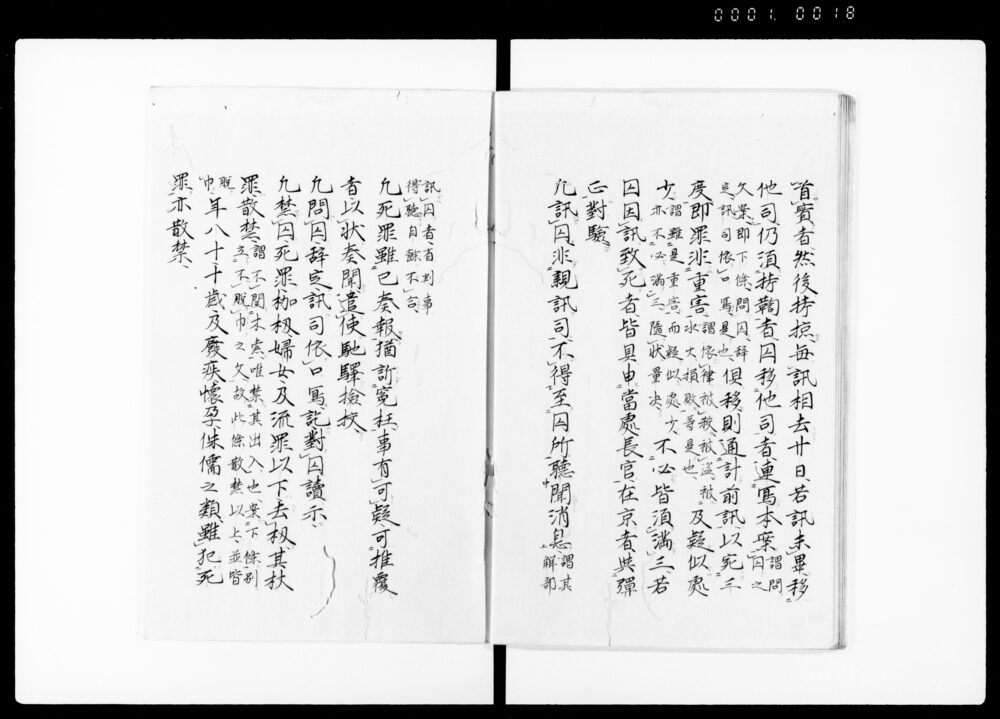 0001. 0018
首實者然後持掠毎訊相去廿日若訊未畢移
他司仍須持鞫者囚移他司者連寫本案謂問囚之
欠案即下條問囚辞
定訊司依口寫是也倶移則通計前訊以宛三
度即罪非重害謂依律被殺被盗被
水火損敗等是也及疑似処
少謂雖是重害而疑似処少
亦不必満三随状量决不必皆須満三若
囚因訊致死者皆具申當處長官在京者与弾
正對驗
凡訊囚非親訊司不得至囚所聴聞消息謂其
解部
訊囚者者判事
得聴自餘不合
凡死罪雖已奏報猶訴冤枉事有可疑可推覆
者以状奏聞遣使馳驛撿挍
凡問囚辞定訊司依口寫訖對囚讀示
凡禁囚死罪枷杻婦女及流罪以下去杻其杖
罪散禁謂不関木索唯禁其出入也案下條別
立不脱巾之文故此條散禁以上並皆
脱
巾年八十十歳及癈疾懐孕侏儒之類雖犯死
罪亦散禁